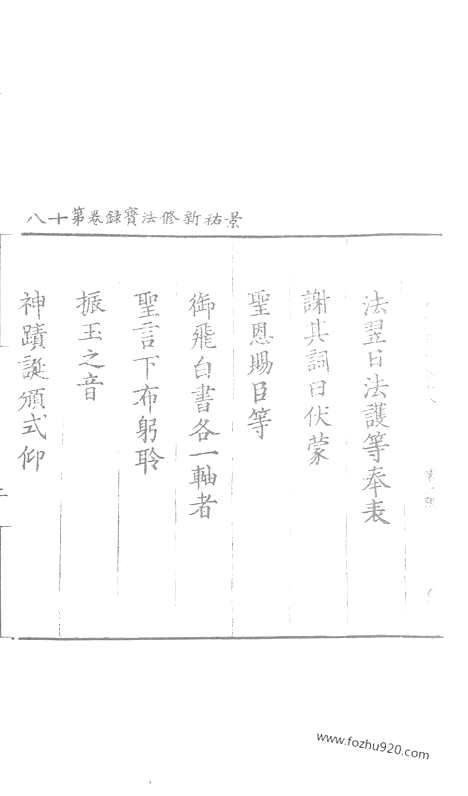 景祐新修法寶録卷第十八
法翌日法護等奉表
謝其詞曰伏蒙
聖恩賜臣等
御飛白書各一軸者
聖言下布躬聆
振玉之音
神蹟誕頒式仰
www.fozhu920.com